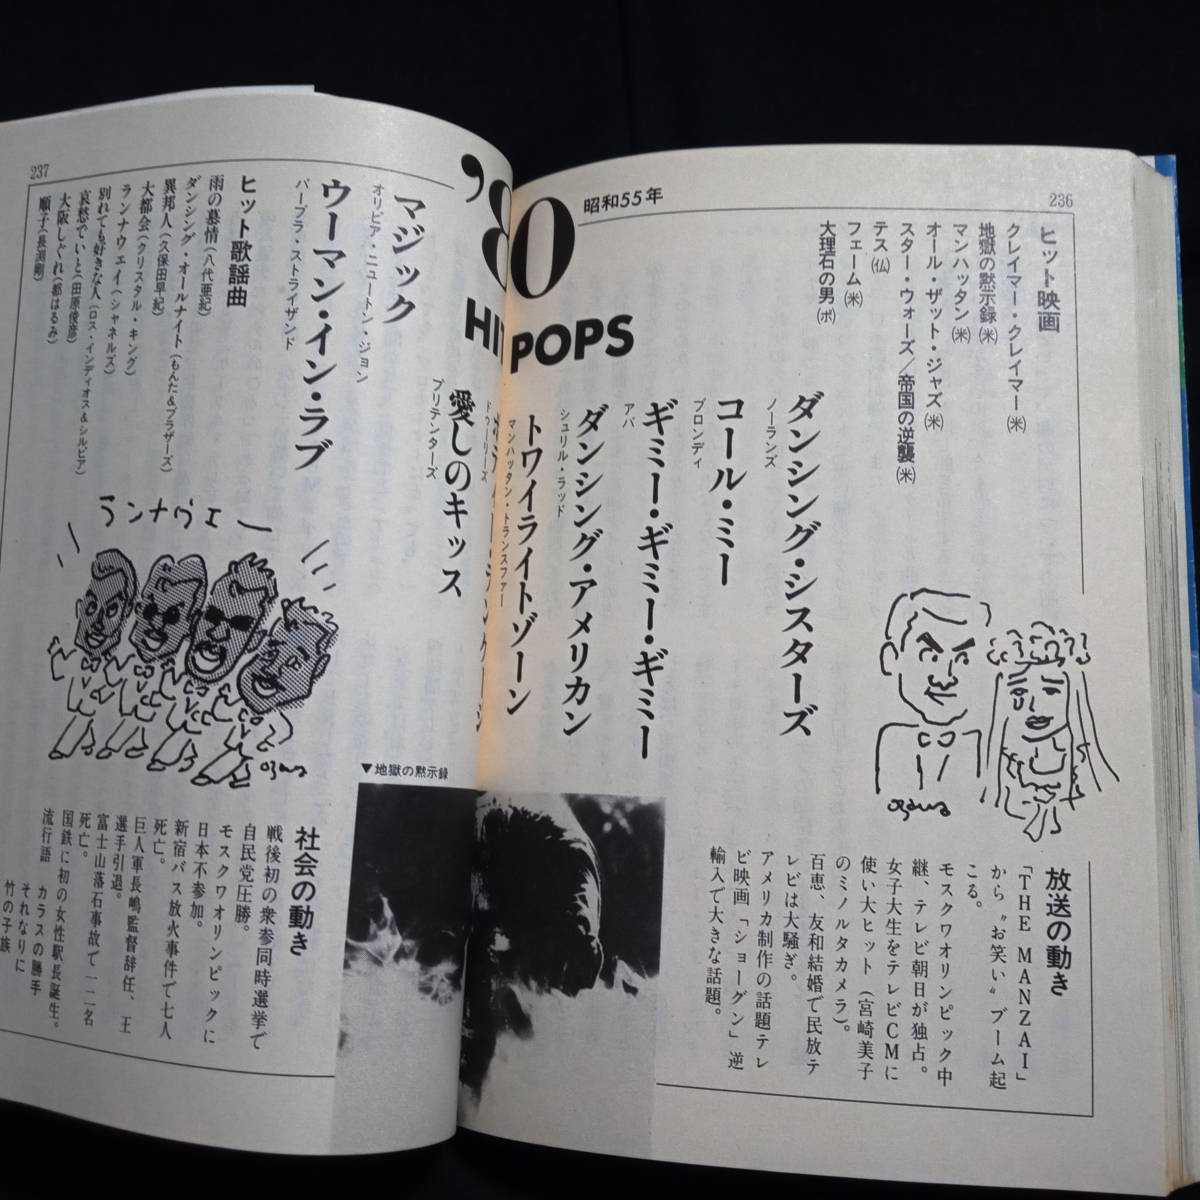 236
'80
昭和55年
HIT POPS
ヒット映画
クレイマー・クレイマー(米)
地獄の黙示録(米)
マンハッタン(米)
オール・ザット・ジャズ(米)
スター・ウォーズ/帝国の逆襲(米)
テス(仏)
フェーム(米)
大理石の男(ポ)
ダンシング・シスターズ
ノーランズ
コール・ミー
ブロンディ
ギミー・ギミー・ギミー
アバ
ダンシング・アメリカン
シェリル・ラッド
トワイライトゾーン
マンハッタン・トランスファー
ドゥーリーズ
愛しのキッス
プリテンターズ
マジック
オリビア・ニュートン・ジョン
ウーマン・イン・ラブ
バーブラ・ストライザンド
放送の動き
「THE MANZAI」
から〝お笑い〟ブーム起
こる。
モスクワオリンピック中
継、テレビ朝日が独占。
女子大生をテレビCMに
使い大ヒット(宮崎美子
のミノルタカメラ)。
百恵、友和結婚で民放テ
レビは大騒ぎ。
アメリカ制作の話題テレ
ビ映画「ショーグン」逆
輸入で大きな話題。
ogawa
237
ヒット歌謡曲
雨の慕情(八代亜紀)
ダンシング・オールナイト(もんた&ブラザーズ)
異邦人(久保田早紀)
大都会(クリスタル・キング)
ランナウェイ(シャネルズ)
別れても好きな人(ロス・インディオス&シルビア)
哀愁でいと(田原俊彦)
大阪しぐれ(都はるみ)
順子(長渕剛)
ランナウェー
ogawa
▼地獄の黙示録
社会の動き
戦後初の衆参同時選挙で
自民党圧勝。
モスクワオリンピックに
日本不参加。
新宿バス放火事件で七人
死亡。
巨人軍長嶋監督辞任、王
選手引退。
富士山落石事故で一二名
死亡。
国鉄に初の女性駅長誕生。
流行語 カラスの勝手
それなりに
竹の子族